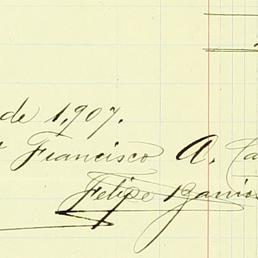 de 1,907.
Francisco A. Ca
Felipe Barrios